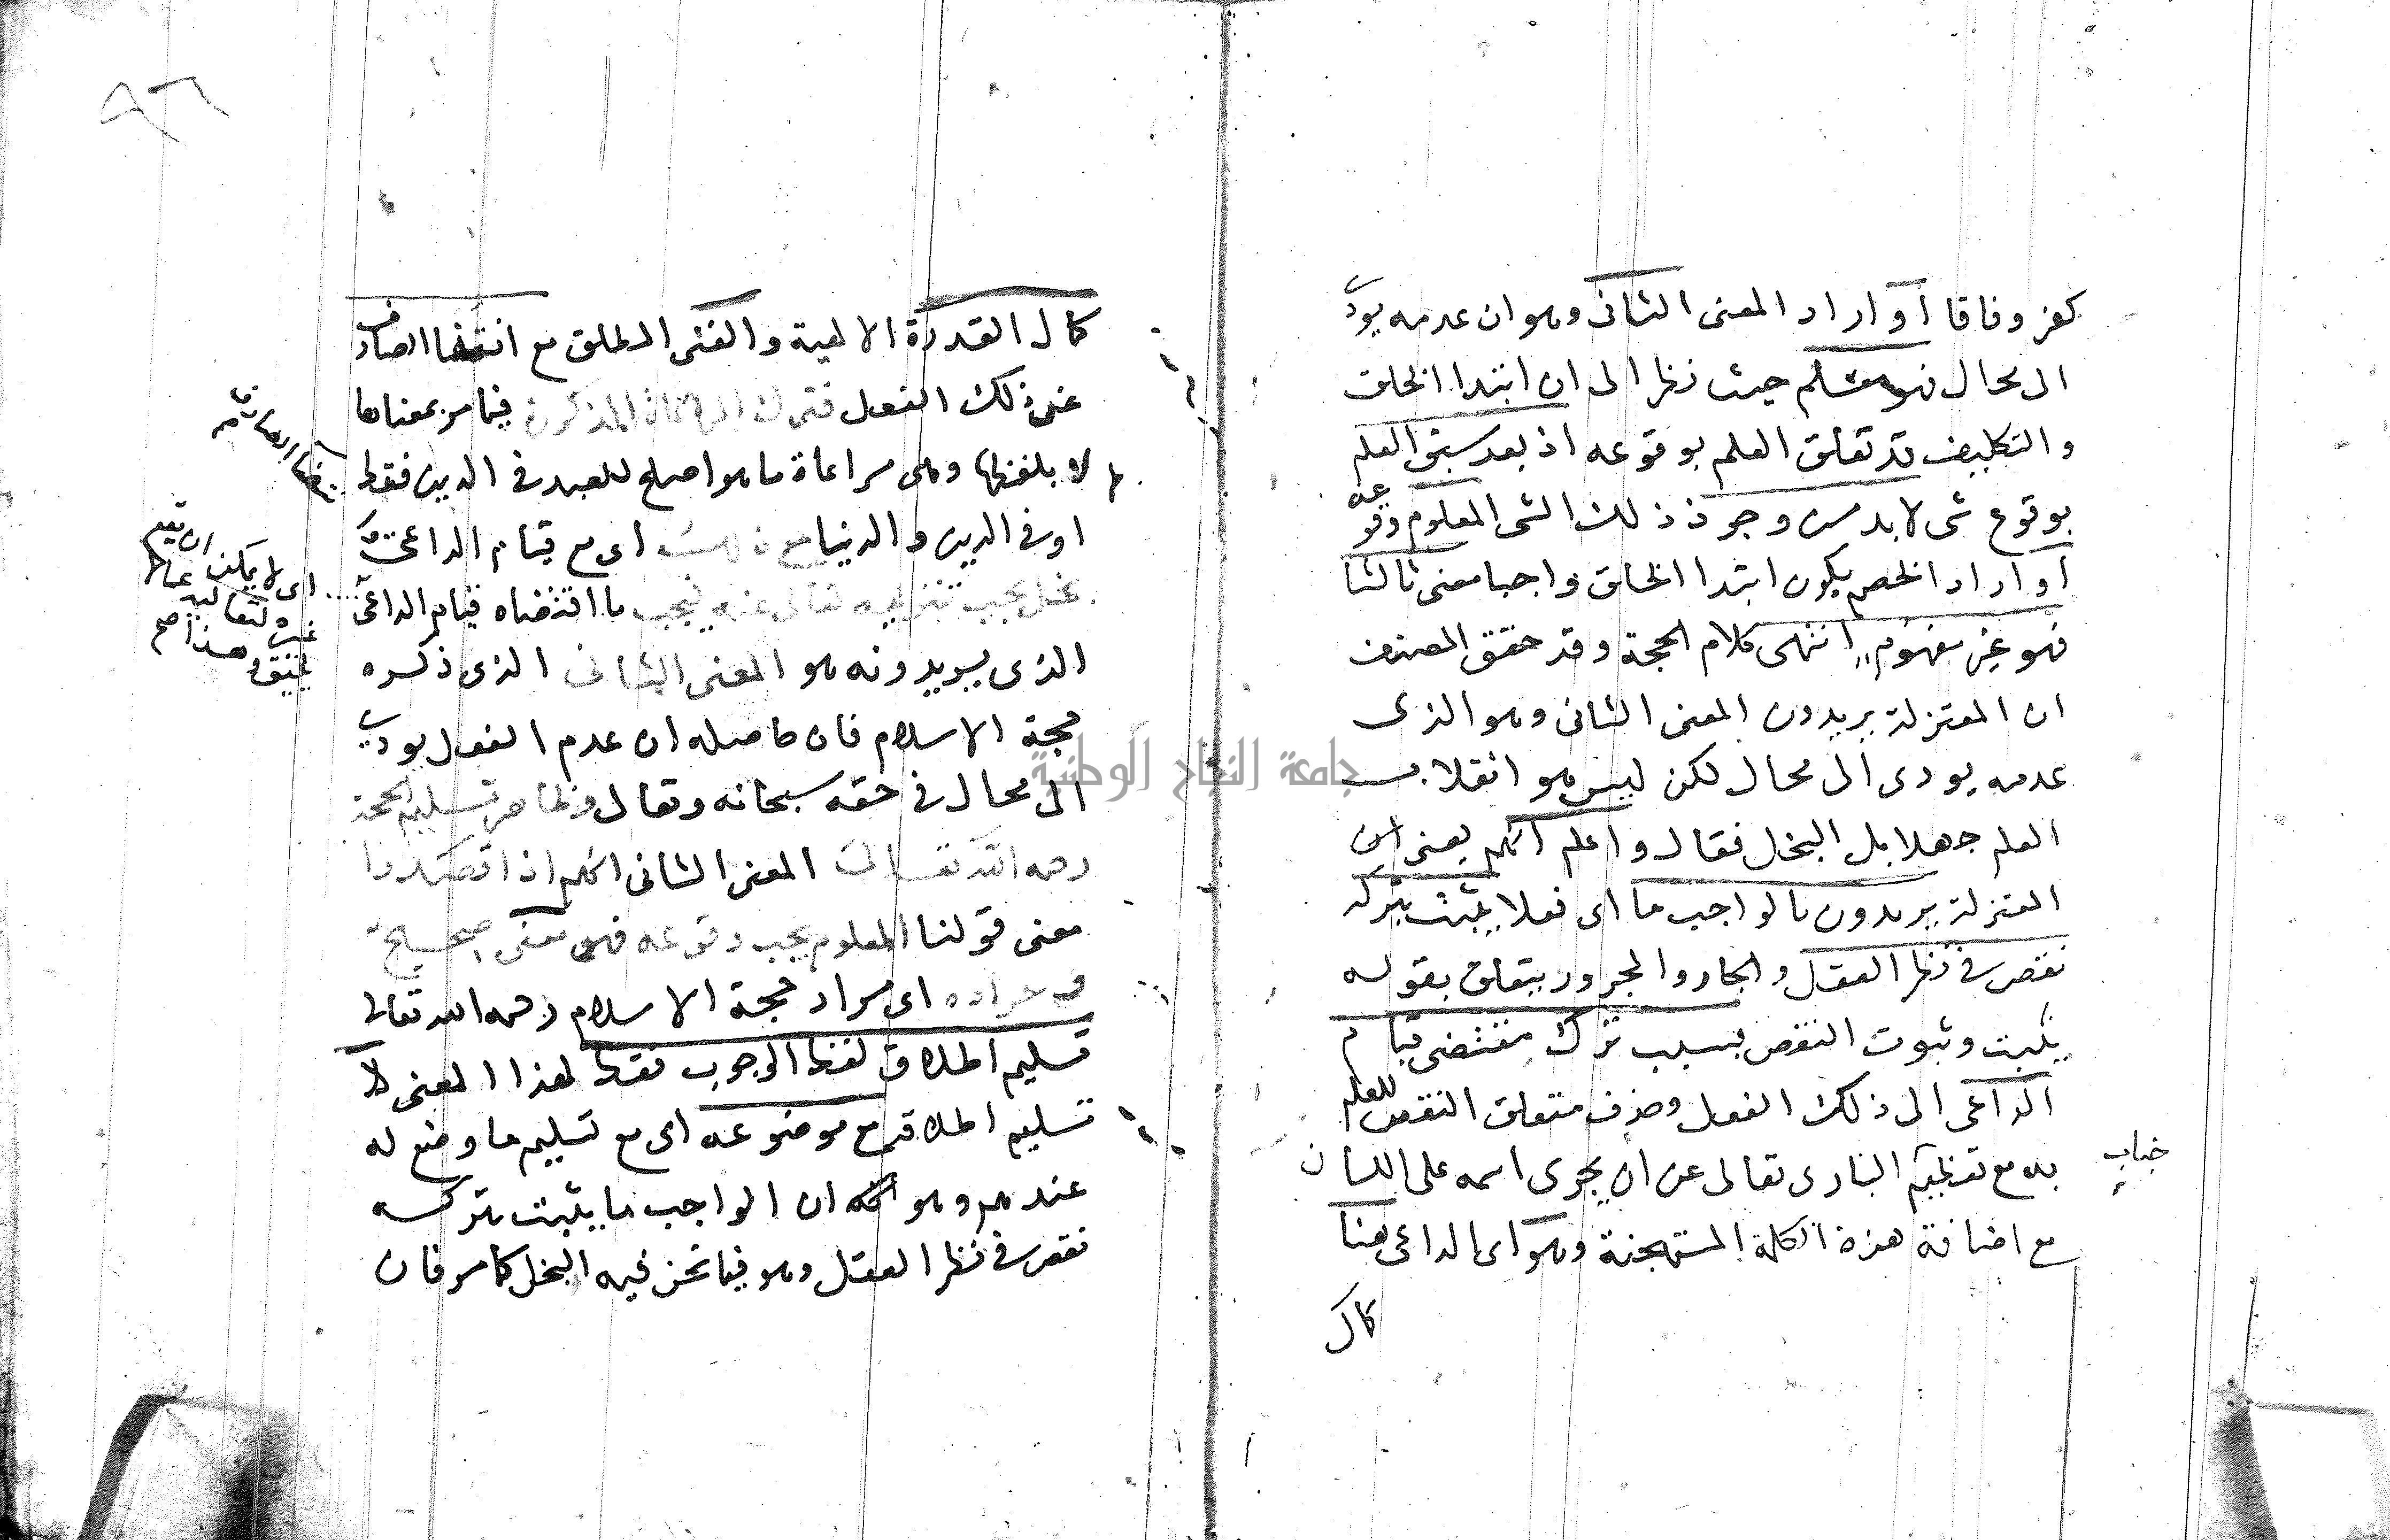 كفر وفاقا أو اراد المعنى الثانى وهو ان عدمه يودى
الى محال فهو مسلم حيث نظر الى ان ابتدا الخلق
والتكليف قد تعلق العلم بوقوعه اذ بعد سبق العلم
بوقوع شى لا بد من وجود ذلك الشى المعلوم وقوعه
أو اراد الخصم بكون ابتدا الخلق واجبا معنى ثالثا
فهو غير مفهوم انتهى كلام الحجة وقد حقق المصنف
ان المعتزلة يريدون المعنى الثانى وهو الذى
عدمه يودى الى محال لكن ليس هو انقلاب
العلم جهلا بل البخل فقال واعلم انهم يعنى اى
المعتزلة يريدون بالواجب ما اى فعلا يثبت بتركه
نقص فى نظر العقل والجار والمجرور يتعلق بقوله
يثبت وثبوت النقص بسبب ترك مقتضى قيام
الداعى الى ذلك الفعل وحذف متعلق النقص للعلم
به مع تعظيم البارى تعالى عن ان يجرى اسمه على اللسان
جناب
مع اضافة هذه الكلمة المستهجنة وهو اى الداعى هنا
كمال
٩٦
كمال القدرة الالهية والغنى المطلق مع انتفا الصارف
عن ذلك الفعل فترك المراعاة المذكورة فيما مر بمعناها
لا بلفظها وهى مراعاة ما هو اصلح للعبد فى الدين فقط
او فى الدين والدنيا مع ذلك اى مع قيام الداعى
بخل يجب تنزيهه تعالى عنه فيجب ما اقتضاه قيام الداعى
اى لا يمكن ان يقع
غيره لتعاليه عما لا
يليق وهذا صح
الذى يريدونه هو المعنى الثانى الذى ذكره
حجة الاسلام فان حاصله ان عدم الفعل يودى
الى محال فى حقه سبحانه وتعالى وظاهر تسليم الحجة
رحمه الله تعالى المعنى الثانى انهم اذا قصدوا
معنى قولنا المعلوم يجب وقوعه فهو معنى صحيح
مراده اى مراد حجة الاسلام رحمه الله تعالى
تسليم اطلاق لفظ الوجوب فقط لهذا المعنى لا
تسليم اطلاقه مع موضوعه اى مع تسليم ما وضع له
عندهم وهو ان الواجب ما يثبت بتركه
نقص فى نظر العقل وهو فيما نحن فيه البخل كما مر فان
جامعة النجاح الوطنية